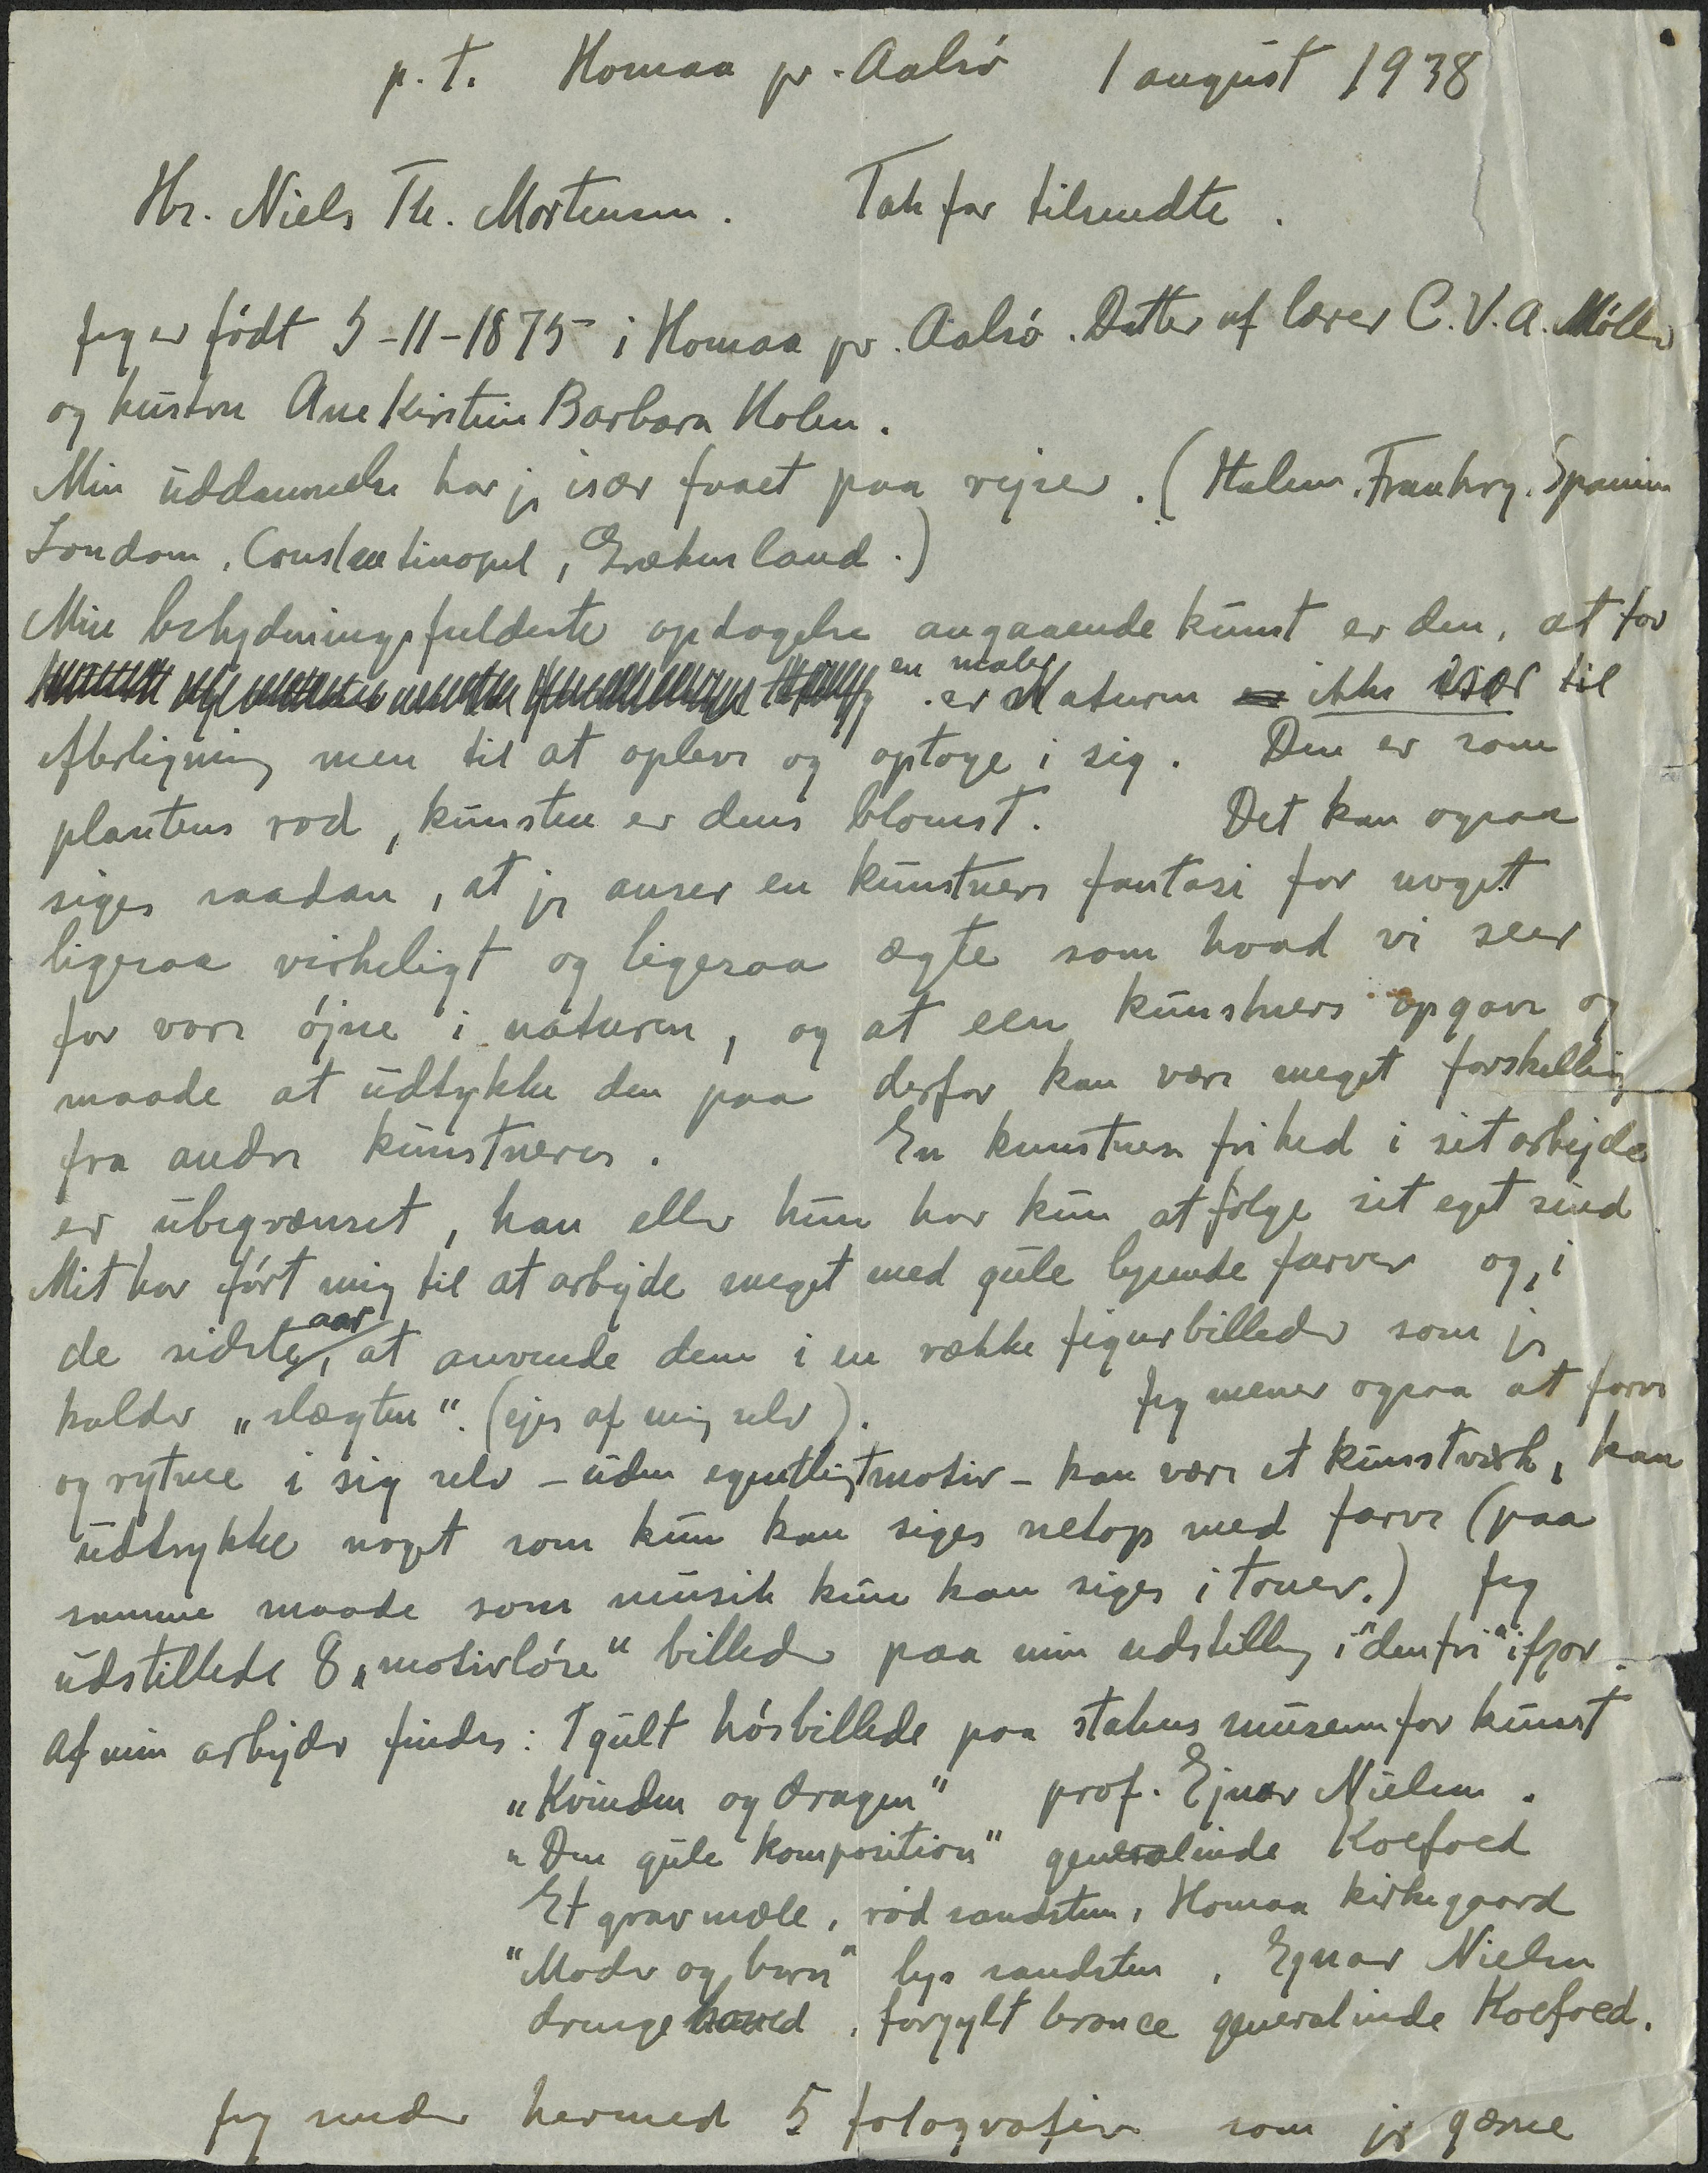 p. t. Homaa pr. Aalsö 1 august 1938
Hr. Niels Th. Mortensen. Tak for tilsendte.
Jeg er födt 5-11-1875 i Homaa pr. Aalsö. Datter af lærer C. V. A. Möller
og hustru Ane Kirstine Barbara Holm.
Min uddannelse har jeg især faaet paa rejser. (Italien, Frankrig, Spanien
London, Constantinopel, Grækenland.)
Min betydningsfuldeste opdagelse angaaende kunst er den, at for
en maler er Naturen ikke især til
efterligning men til at opleve og optage i sig. Den er som
plantens rod, kunsten er dens blomst. Det kan ogsaa
siges saadan, at jeg anser en kunstners fantasi for noget
ligesaa virkeligt og ligesaa ægte som hvad vi seer
for vore öjne i naturen, og at een kunstners opgave og
maade at udtrykke den paa derfor kan være meget forskellig
fra andre kunstneres. En kunstners frihed i sit arbejde
er ubegrænset, han eller hun har kun at fölge sit eget sind
Mit har fört mig til at arbejde meget med gule lysende farver og, i
de sidste aar, at anvende dem i en række figurbilleder som jeg
kalder „slægten". (ejes af mig selv). Jeg mener ogsaa at farve
og rytme i sig selv – uden egentligt motiv – kan være et kunstværk, kan
udtrykke noget som kun kan siges netop med farve (paa
samme maade som musik kun kan siges i toner.) Jeg
udstillede 8 „motivlöse" billeder paa min udstilling i "den fri" ifjor.
Af mine arbejder findes: 1 gult hösbillede paa statens museum for kunst
„Kvinden og dragen" prof. Ejnar Nielsen.
"Den gule komposition" generalinde Koefoed
Et gravmæle, röd sandsten, Homaa kirkegaard
"Moder og barn" lys sandsten, Ejnar Nielsen
drengehoved, forgylt bronce generalinde Koefoed.
Jeg sender hermed 5 fotografier som jeg gærne